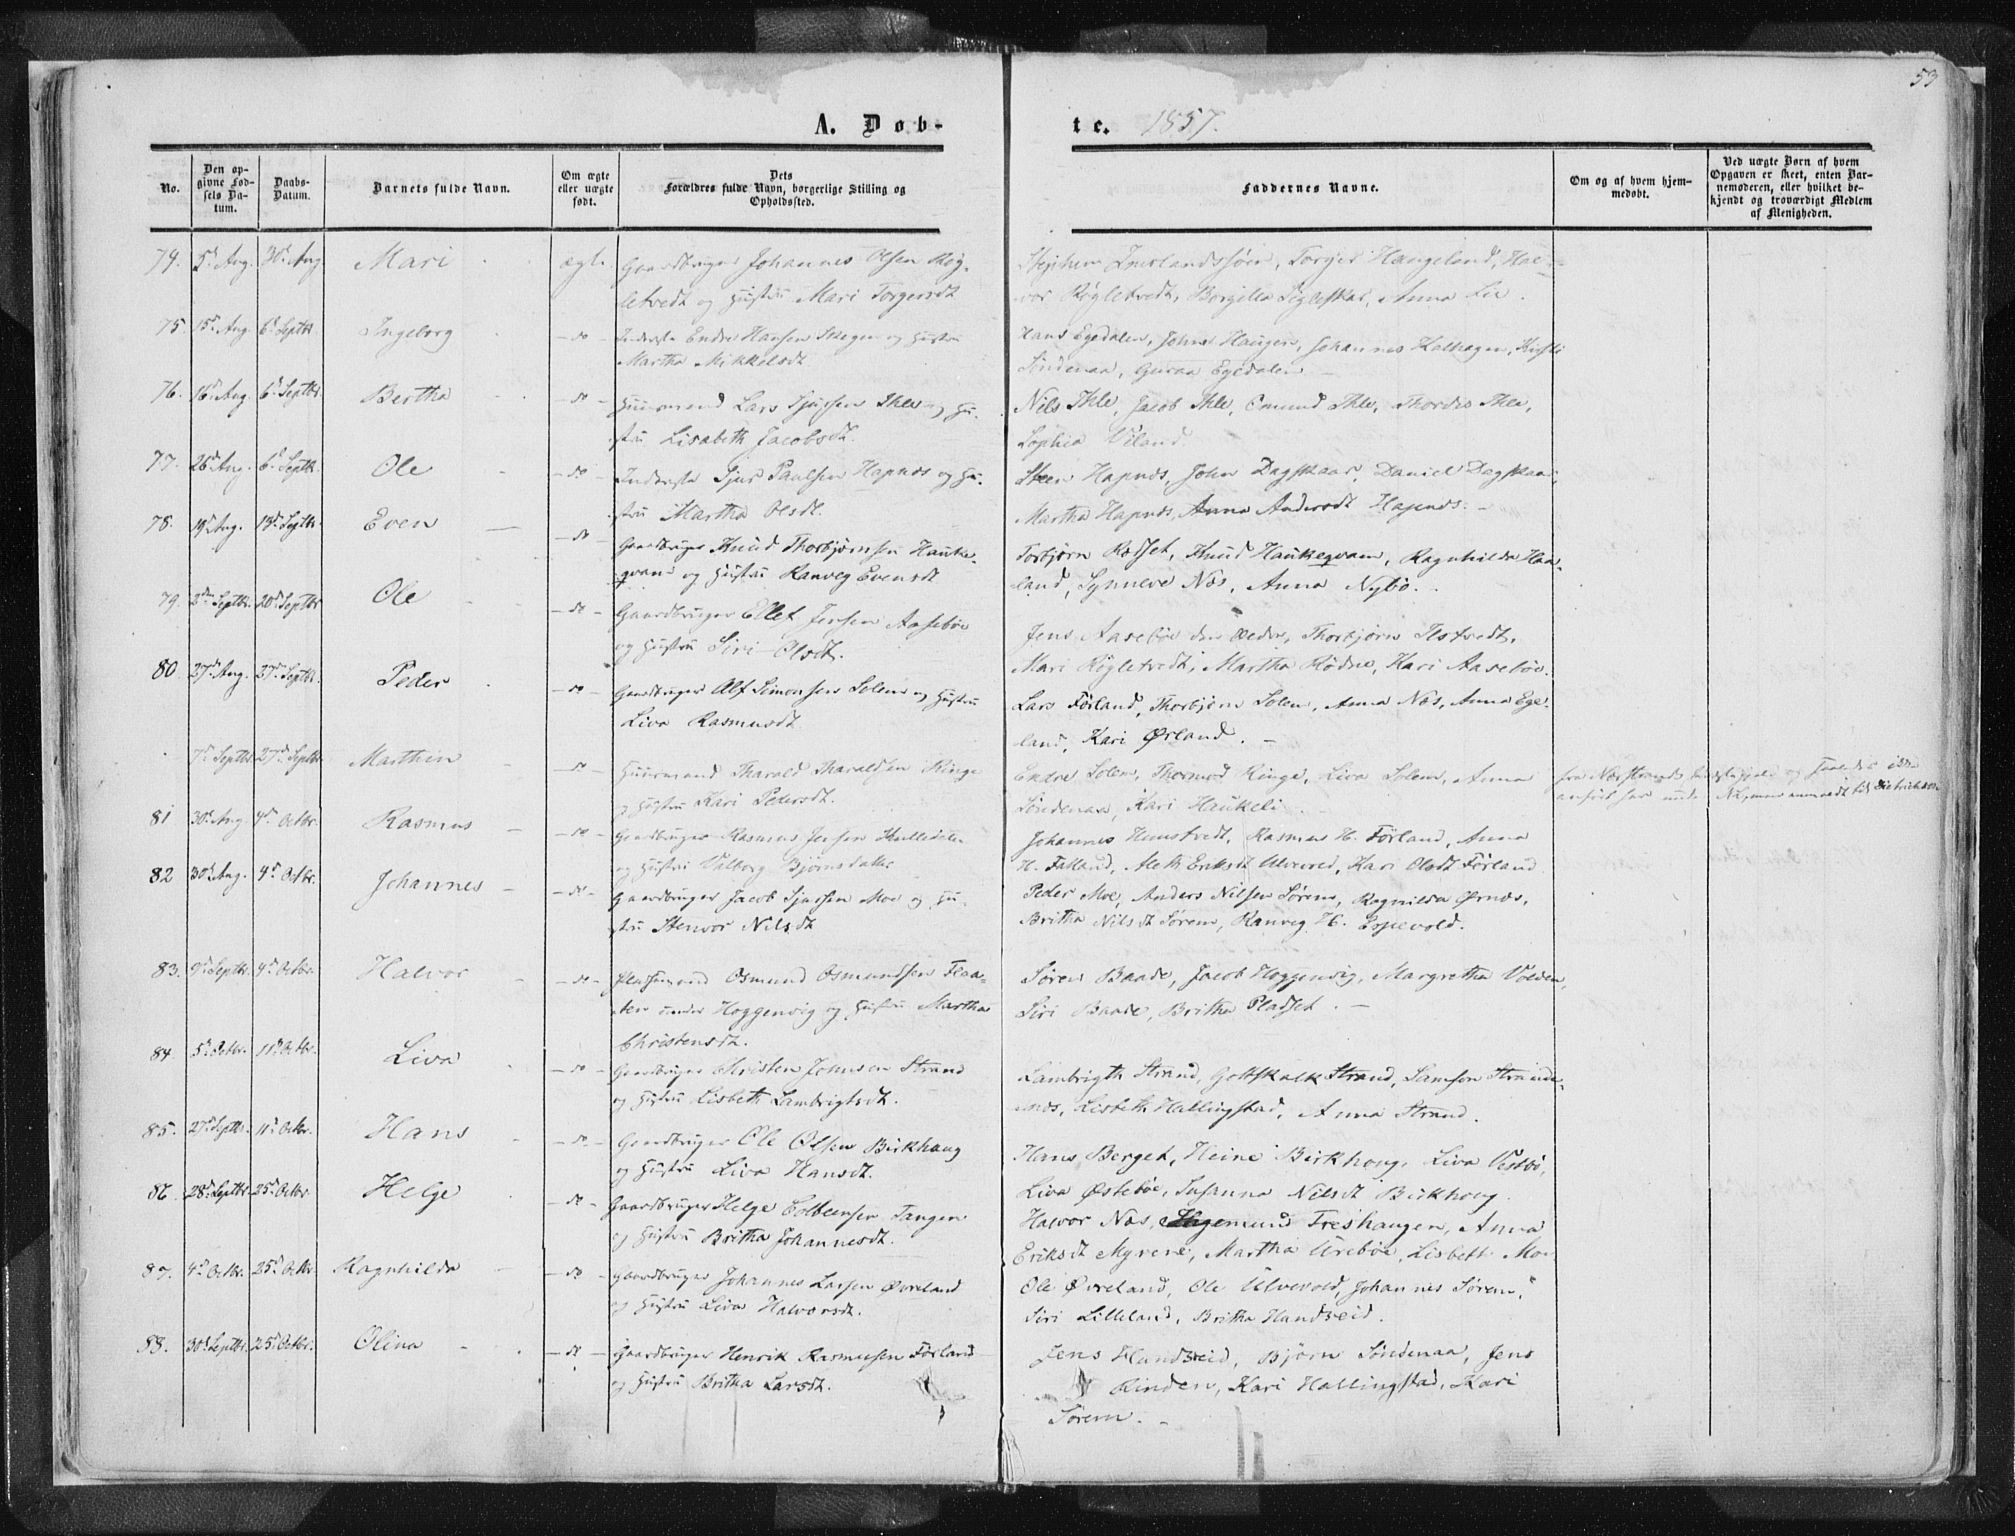 53
A. Døb- te. 1857.
No.
Den opgivne Fødsels Datum.
Daabs-Datum.
Barnets fulde Navn.
Om ægte eller uægte født.
Dets Forældres fulde Navn, borgerlige Stilling og Opholdssted.
Faddernes Navne.
Om og af hvem hjemmedøbt.
Ved uægte Børn af hvem Opgaven er skeet, enten Barnemoderen, eller hvilket bekjendt og troværdigt Medlem af Menigheden.
74. 5te Aug. 30te Aug. Mari ægte Gaardbruger Johannes Olsen Røg-
letvedt og Hustru Mari Torgersdt
Torger Haugeland, Hal-
vor Røgletvedt, Anna Lie.
75. 15de Aug. 6te Septbr. Ingeborg - do - Inderste Endre Hansen og Hustru
Martha Mikkelsdt
Hans Egedalen, Johannes Kalhagen, Kirsti
Søndenaa, Guroa Egedalen -
76. 16de Aug. 6te Septbr. Bertha - do - Huusmand Lars Sjursen Ihle og Hu-
stru Lisabeth Jacobsdt.
Nils Ihle, Jacob Ihle, Omund Ihle, Thordis Ihle,
Sophia Viland.
77. 26de Aug. 6te Septbr. Ole - do - Inderste Sjur Paulsen Hapnæs og Hu-
stru Martha Olsdt.
Steen Hapnæs, John Dagskaar, Daniel Dagskaar,
Martha Hapnæs, Anna Andersdt Hapnæs. -
78. 19de Aug. 13de Septbr. Even - do - Gaardbruger Knud Thorbjørnsen Hauke-
qvam og Hustru Ranveg Evensdt
Torbjørn Rødset, Knud Haukeqvam, Ragnhilda Haa-
land, Synneve Næs, Anna Nybø.
79. 2den Septbr. 20de Septbr Ole - do - Gaardbruger Ellef Jensen Aasebøe
og Hustru Siri Olsdt.
Jens Aasebøe den Ældre, Thorbjørn Testvedt,
Mari Røgletvedt, Martha Rødne, Kari Aasebøe.
80. 27de Aug. 27de Septbr. Peder - do - Gaardbruger Alf Simonsen Solem og Hustru
Liva Rasmusdt
Lars Førland, Thorbjørn Solem, Anna Næs, Anna Ege-
land, Kari Ørland. -
7de Septbr. 27de Septbr. Marthin - do - Huusmand Tharald Tharaldsen Ringe
og Hustru Kari Pedersdt.
Endre Solem, Thormod Ringe, Liva Solem, Anna
Søndenaa, Kari Haukeli.
fra Nærstrands Præstegjeld og
81 30te Aug. 4de Octbr. Rasmus - do - Gaardbruger Rasmus Jensen
og Hustru Valborg Bjørnsdatter
Johannes Rasmus H. Førland, Anna
H. Falland, Meth Eriksdt Ulvevold, Kari Olsdt Førland
82 30te Aug. 4de Octbr. Johannes - do - Gaardbruger Jacob Sjursen Moe og Hu-
stru Stenvor Nilsdt
Peder Moe, Anders Nilsen Sørem, Ragnilda Ørnæs,
Britha Nilsdt Sørem, Ranveg H. Espevold.
83. 9de Septbr. 4de Octbr. Halvor - do - Pladsmand Osmund Osmundsen Flaa-
ten under Hoggenvig og Hustru Martha
Christensdt.
Søren Baade, Jacob Hoggenvig, Margretha Volden,
Siri Baade, Britha Pladset. -
84. 5te Octbr. 11te Octbr. Liva - do - Gaardbruger Christen Johnsen Strand
og Hustru Lisbeth Lambrigtsdt.
Lambrigth Strand, Gottskalk Strand, Samson Strande-
næs, Lisbeth Hallingstad, Anna Strand.
85. 27de Septbr. 11te Octbr. Hans - do - Gaardbruger Ole Olsen Birkhaug
og Hustru Liva Hansdt.
Hans Berget, Heine Birkhoug, Liva Vestbø,
Liva Østebøe, Susanna Nilsdt Birkhoug.
86. 28de Septbr. 25de Octbr. Helge - do - Gaardbruger Helge Colbeensen Tangen
og Hustru Britha Johannesdt.
Halvor Næs, Ingemund Treshaugen, Anna
Eriksdt Myrene, Martha Urebøe, Lisbeth Moe
87. 4de Octbr. 25de Octbr. Ragnhilda - do - Gaardbruger Johannes Larsen Øvreland
og Hustru Liva Halvorsdt.
Ole Øvreland, Ole Ulvevold, Johannes Sørem,
Siri Lilleland, Britha Hundseid.
88. 30te Septbr. 25de Octbr. Olina - do - Gaardbruger Henrik Rasmusen Førland
og Hustru Britha Larsdt.
Jens Hundseid, Bjørn Søndenaa, Jens
Rinden, Kari Hallingstad, Kari
Sørem. -